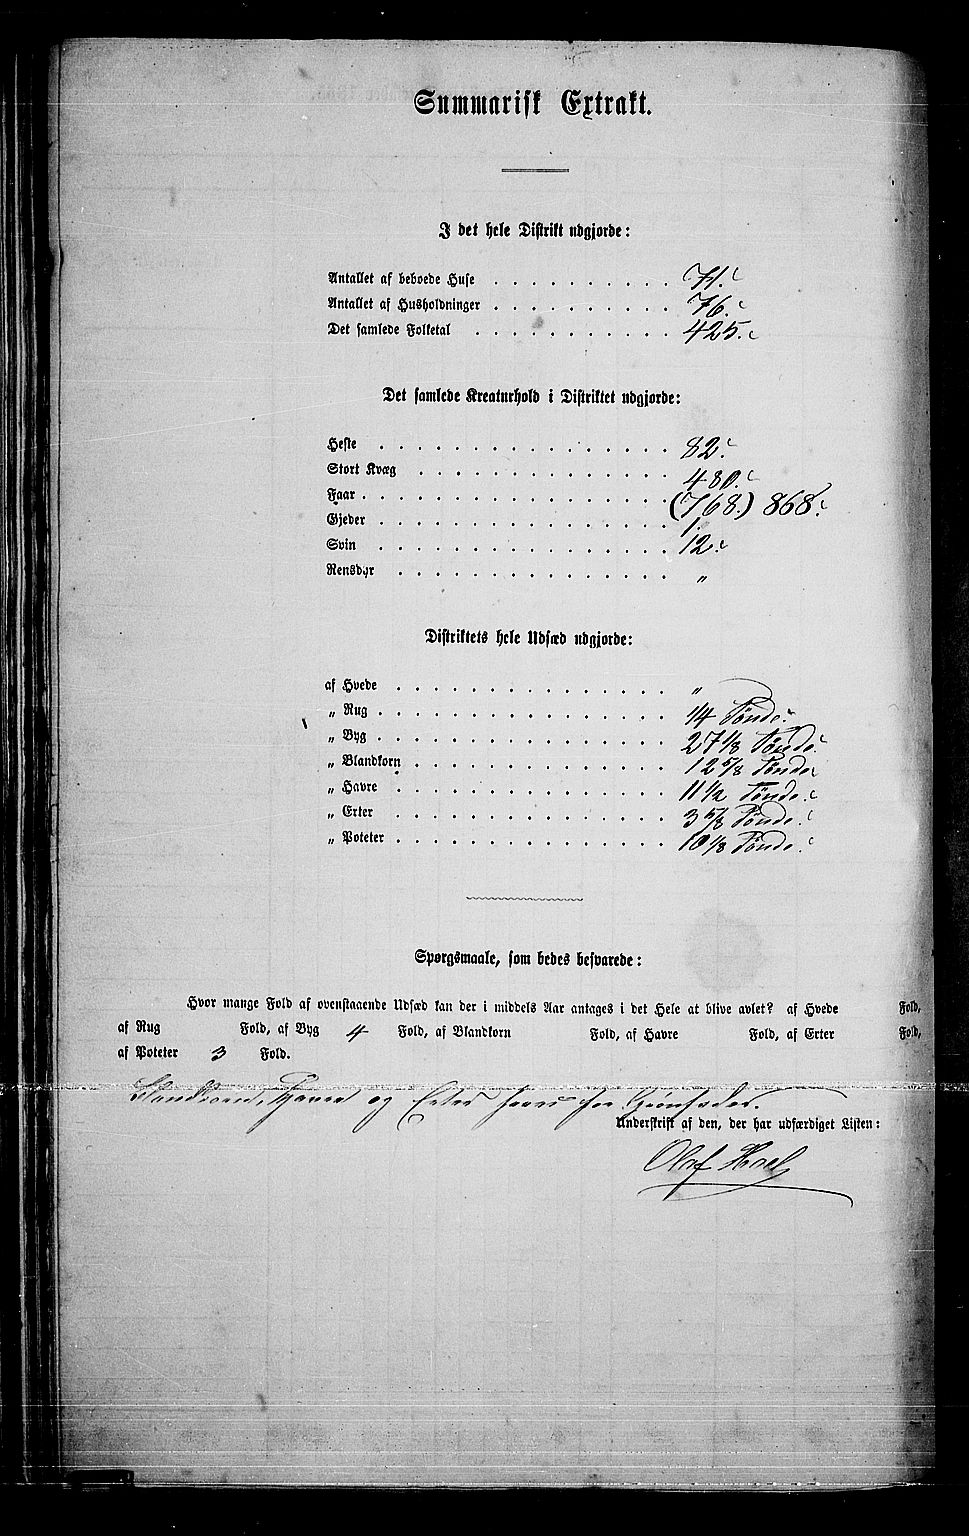 Summarisk Extrakt.
I det hele Distrikt udgjorde:
Antallet af beboede Huse . . . . . . . . . . 71.
Antallet af Husholdninger . . . . . . . . . . 76.
Det samlede Folketal . . . . . . . . . . . 425.
Det samlede Kreaturhold i Distriktet udgjorde:
Heste . . . . . . . . . . . . . . . . 82.
Stort Kvæg . . . . . . . . . . . . . . 480.
Faar . . . . . . . . . . . . . . . . . (768.) 868.
Gjeder . . . . . . . . . . . . . . . . 1.
Svin . . . . . . . . . . . . . . . . 12.
Rensdyr . . . . . . . . . . . . . . . „
Distriktets hele Udsæd udgjorde:
af Hvede . . . . . . . . . . . . . . . „
„ Rug . . . . . . . . . . . . . . . . 14 Tønde.
„ Byg . . . . . . . . . . . . . . . . 27 1/8 Tønde.
„ Blandkorn . . . . . . . . . . . . . . 12 5/8 Tønde
„ Havre . . . . . . . . . . . . . . . 11 1/2 Tønde.
„ Erter . . . . . . . . . . . . . . . 3 5/8 Tønde.
„ Poteter . . . . . . . . . . . . . . . 10 1/8 Tønde.
Spørgsmaale, som bedes besvarede:
Hvor mange Fold af ovenstaaende Udsæd kan der i middels Aar antages i det Hele at blive avlet? af Hvede Fold,
af Rug Fold, af Byg 4 Fold, af Blandkorn Fold, af Havre Fold, af Erter Fold,
af Poteter 3 Fold.
Blandkorn, Havre og Erter saaes for Grønfoder.
Underskrift af den, der har udfærdiget Listen:
Olaf